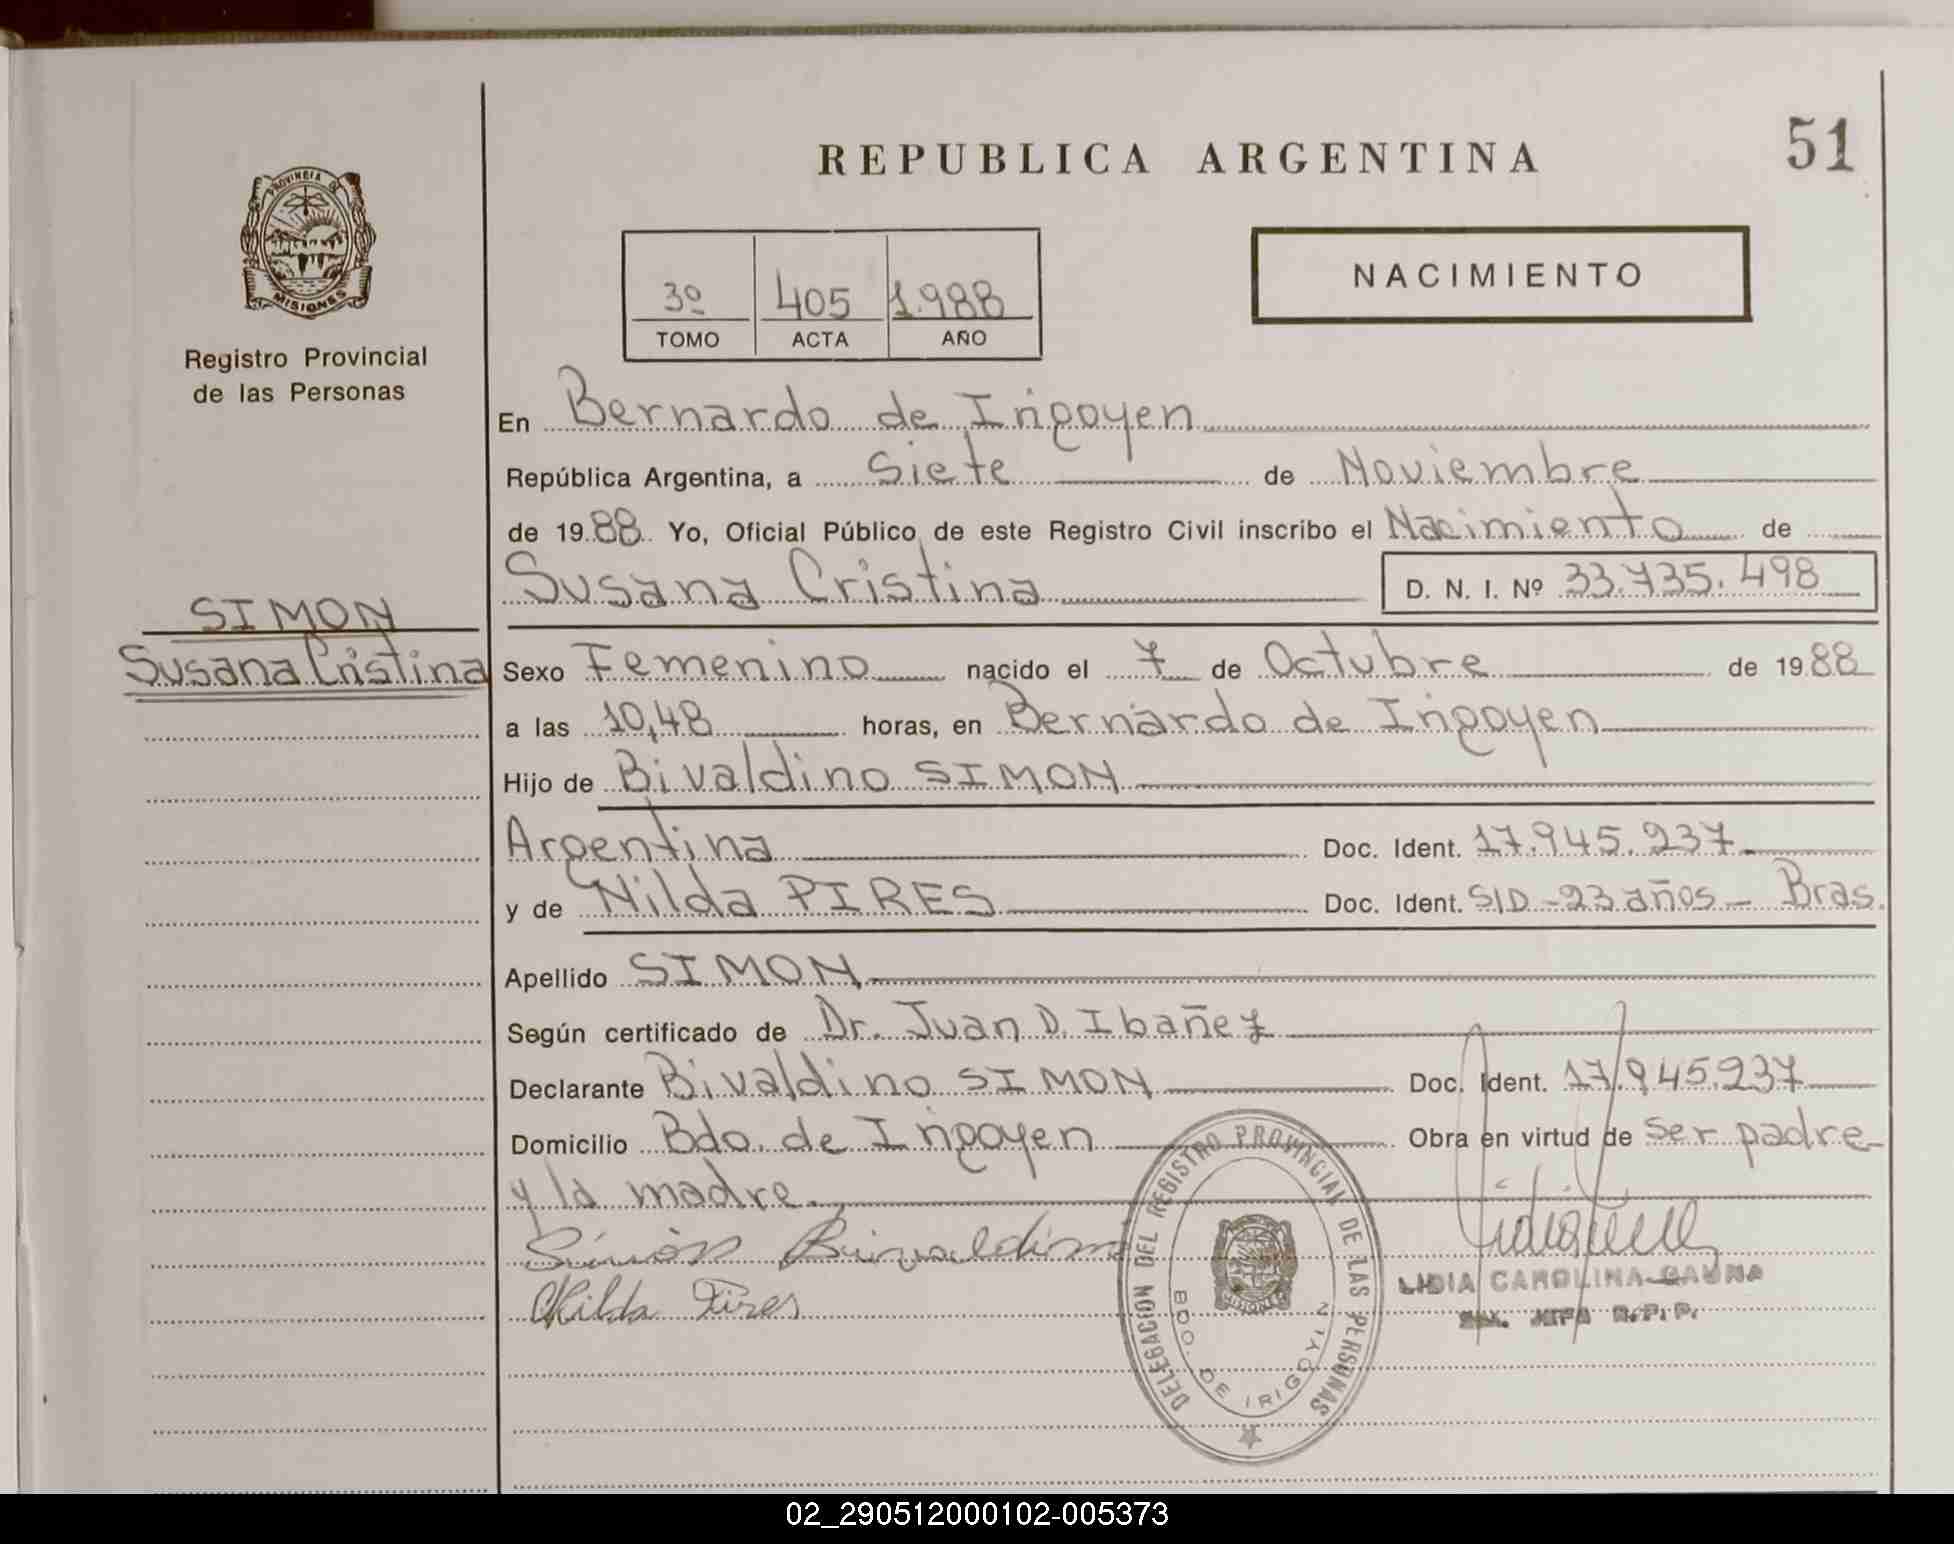 REPUBLICA ARGENTINA
51
PROVINCIA DE
MISIONES
Registro Provincial
de las Personas
3º 405 1.988
TOMO ACTA AÑO
NACIMIENTO
En Bernardo de Irigoyen
República Argentina, a Siete de Noviembre
de 1988 Yo, Oficial Público de este Registro Civil inscribo el Nacimiento de
Susana Cristina D. N. I. Nº 33.735.498
SIMON
Susana Cristina
Sexo Femenino nacido el 7 de Octubre de 1988
a las 10,48 horas, en Bernardo de Irigoyen
Hijo de Bivaldino SIMON
Argentina Doc. Ident. 17.945.237
y de Nilda PIRES Doc. Ident. S/D - 23 años - Bras.
Apellido SIMON
Según certificado de Dr. Juan D. Ibañez
Declarante Bivaldino SIMON Doc. Ident. 17.945.237
Domicilio Bdo. de Irigoyen Obra en virtud de ser padre
y la madre.
Simón Bivaldino
Nilda Pires
DELEGACION DEL REGISTRO PROVINCIAL DE LAS PERSONAS
BDO. DE IRIGOYEN
LIDIA CAROLINA GAUNA
JEFA R.P.P.
02_290512000102-005373